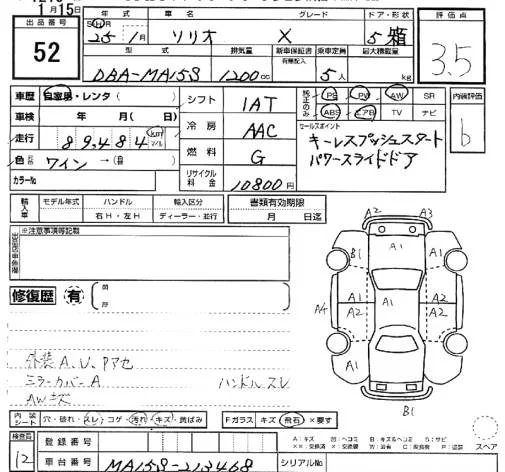 1月15日
出品番号 52
年式 車名 グレード ドア・形状 評価点
SHR 25年 1月 ソリオ X 5 箱 3.5
型式 排気量 新車保証書 乗車定員 最大積載量
有無記入
DBA-MA15S 1200cc 5人 kg
車歴 自家用・レンタ ( ) シフト 1AT 純正のみ PS PW AW SR 内装評価
車検 年 月( 日) ABS エアB TV ナビ b
走行 89,484 km マイル 冷房 AAC セールスポイント
キーレスプッシュスタート
色 ワイン →(色 ) 燃料 G パワースライドドア
カラーNo リサイクル料金 10800円
輸入車 モデル年式 ハンドル 輸入区分 書類有効期限
右H・左H ディーラー・並行 月 日迄
※注意事項等記載
修復歴 有
A2 A3
A1
B1 A1
A4 A1 A2 A1 A1 A2
A1 A1
B1
外装A.U.Pアセ
ミラーカバーA ハンドルスレ
AWキズ
内装シート 穴・破れ・スレ・コゲ・汚れ・キズ・黄ばみ Fガラス キズ・飛石・×要す
A:キズ U:ヘコミ B:キズ&ヘコミ S:サビ
スペア
検査員 12 登録番号
車台番号 MA15S-213468 シリアルNo